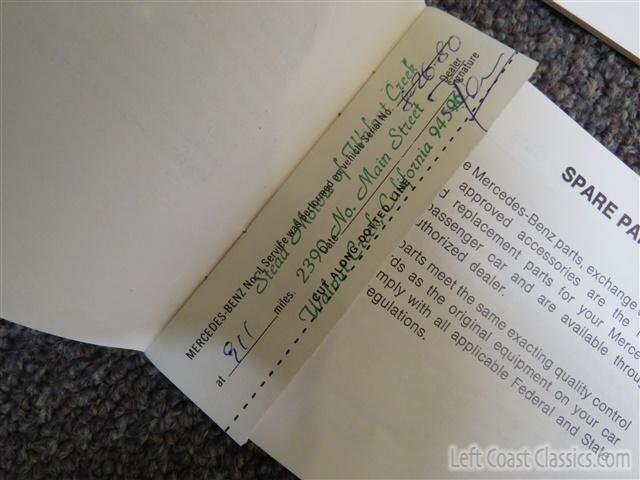 MERCEDES-BENZ No. 1 Service was performed on vehicle Serial No.
at 911 miles. Date -26-80
Dealer Signature
Stead Motors of Walnut Creek
2390 No. Main Street
Walnut Creek, California 94596
CUT ALONG DOTTED LINE
SPARE PA
e Mercedes-Benz parts, exchange
approved accessories are the
d replacement parts for your Merce
passenger car and are available throu
uthorized dealer.
parts meet the same exacting quality control
rds as the original equipment on your car
mply with all applicable Federal and State
egulations.
Left Coast Classics.com